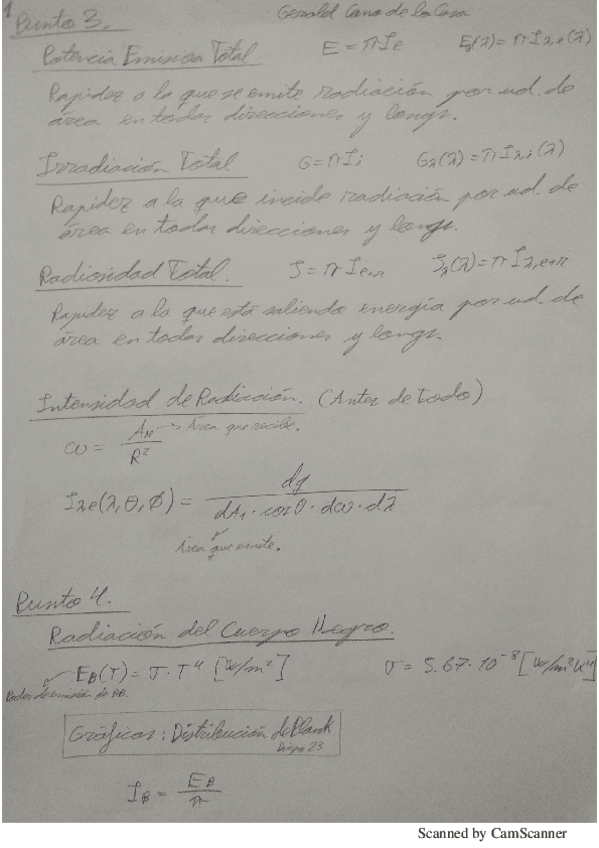 1
Punto 3. Gerald Cano de la Casa
Potencia Emisiva Total E = πIe Eλ(λ) = πIλ,e(λ)
Rapidez a la que se emite radiación por ud. de
área en todas direcciones y longs.
Irradiación Total. G = πIi Gλ(λ) = πIλ,i(λ)
Rapidez a la que incide radiación por ud. de
área en todas direcciones y longs.
Radiosidad Total. J = πIe+r Jλ(λ) = πIλ,e+r
Rapidez a la que está saliendo energía por ud. de
área en todas direcciones y longs.
Intensidad de Radiación. (Antes de todo)
ω = An/R² → Área que recibe.
Iλe(λ,θ,φ) = dq/(dA1 · cosθ · dω · dλ)
Área que emite.
Punto 4.
Radiación del Cuerpo Negro.
EB(T) = σ · T⁴ [W/m²] σ = 5.67 · 10⁻⁸ [W/m²K⁴]
Poder de emisión de BB.
Gráficas: Distribución de Plank
Diapo 23
IB = EB/π
Scanned by CamScanner